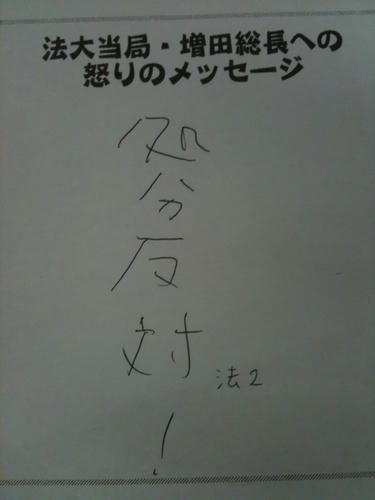 法大当局・増田総長への
怒りのメッセージ
処分反対!
法2